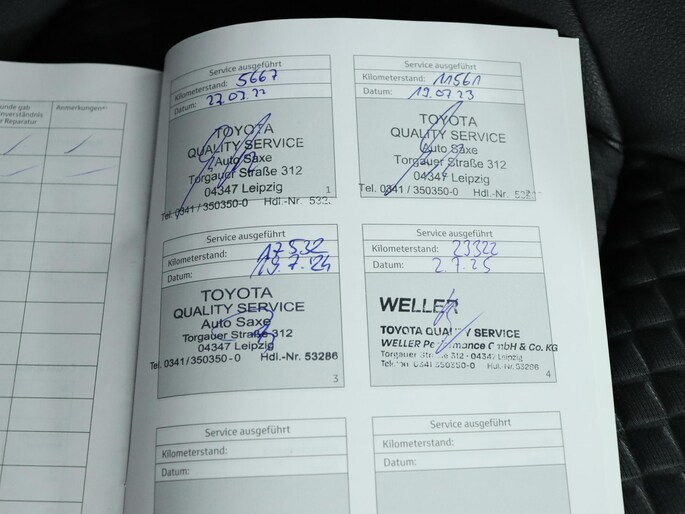 unde gab
nverständnis
r Reparatur
Anmerkungen
Service ausgeführt
Kilometerstand: 5667
Datum: 27.07.22
TOYOTA
QUALITY SERVICE
Auto Saxe
Torgauer Straße 312
04347 Leipzig
Tel. 0341 / 350350-0 Hdl.-Nr. 532
1
Service ausgeführt
Kilometerstand: 11561
Datum: 19.07.23
TOYOTA
QUALITY SERVICE
Auto Saxe
Torgauer Straße 312
04347 Leipzig
Tel. 0341 / 350350-0 Hdl.-Nr. 532
Service ausgeführt
Kilometerstand: 17532
Datum: 19.7.24
TOYOTA
QUALITY SERVICE
Auto Saxe
Torgauer Straße 312
04347 Leipzig
Tel. 0341 / 350350-0 Hdl.-Nr. 53286
3
Service ausgeführt
Kilometerstand: 23322
Datum: 2.7.25
WELLER
TOYOTA QUALITY SERVICE
WELLER Performance GmbH & Co. KG
Torgauer Straße 312 · 04347 Leipzig
Telefon 0341 350350-0 Hdl.-Nr. 53286
4
Service ausgeführt
Kilometerstand:
Datum:
Service ausgeführt
Kilometerstand:
Datum: